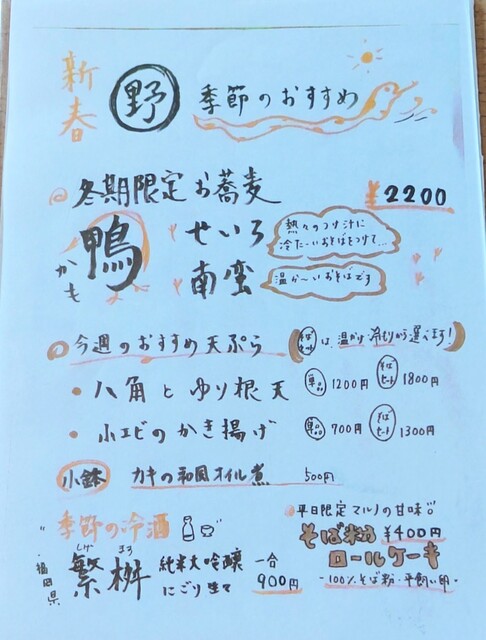 新春
野 季節のおすすめ
冬期限定お蕎麦 ¥2200
鴨 かも
せいろ 熱々のつけ汁に
冷た〜いおそばをつけて…
南蛮 温か〜いおそばです
今週のおすすめ天ぷら そばセットは、温かけ 冷もりから選べます!
・八角とゆり根天 単品 1200円 そばセット 1800円
・小エビのかき揚げ 単品 700円 そばセット 1300円
小鉢 カキの和風オイル煮 500円
季節の冷酒
福岡県 繁桝 しげ ます
純米大吟醸
にごり生々
一合
900円
平日限定マルノの甘味
そば粉 ¥400円
ロールケーキ
-100%そば粉・平飼い卵-